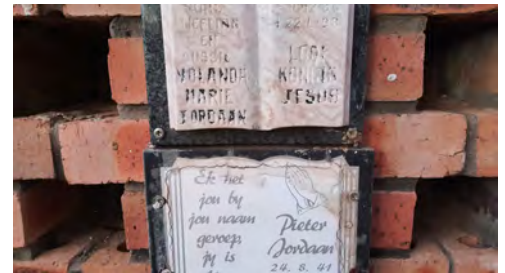 EN
YOLANDA
MARIE
JORDAAN
LOOF
KONING
JESUS
Ek het
jou by
jou naam
geroep;
jy is
Pieter
Jordaan
24. 8. 41